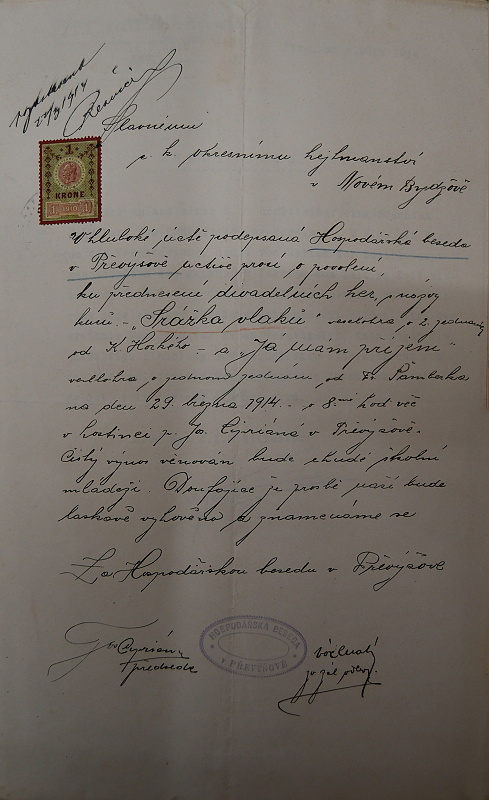 Slavnému
c. k. okresnímu hejtmanství
v Novém Bydžově
1
KRONE
1 1910 1
V hluboké úctě podepsaná Hospodářská beseda
v Převýšově uctivě prosí o povolení,
ku přednesení divadelních her, s názvy
kusů. - „Srážka vlaků" veselohra o 2 jednáních
od K. Horkého - a „Já mám příjem"
veselohra o jednom jednání od Fr. Šamberka
na den 29. března 1914 - o 8. hod več
v hostinci p. Jos. Cypriána v Převýšově.
Čistý výnos věnován bude chudé školní
mládeži. Doufajíce že prosbě naší bude
laskavě vyhověno a znamenáme se
Za Hospodářskou besedu v Převýšově
HOSPODÁŘSKÁ BESEDA
v PŘEVÝŠOVĚ
Cyprián
předseda